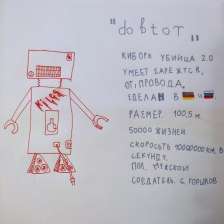 "dobtor"
КИБОРГ УБИЙЦА 2.0
УМЕЕТ ЗАРЕЖТСЯ,
ОТ, ПРОВОДА,
СДЕЛАН В И
РАЗМЕР. 100,5 м.
50000 ЖИЗНЕЙ
СКОРОСТЬ 10000000 КМ, В
СЕКУНДУ.
ПОЛ. МУЖСКОЙ
СОЗДАТЕЛЬ. С. ГОРШКОВ